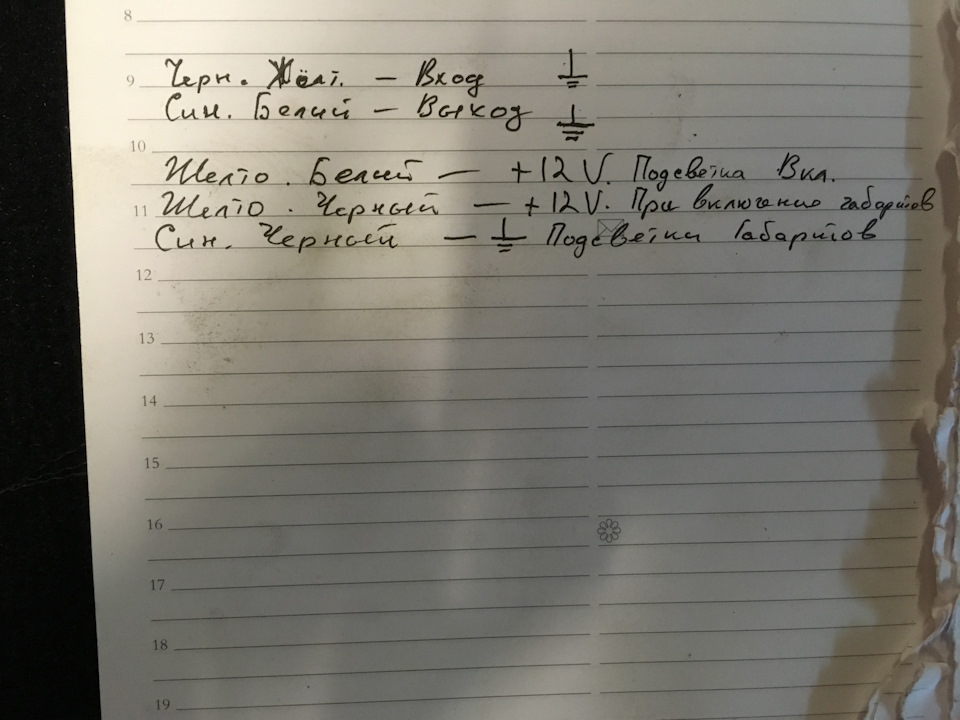 8
9 Черн. Жёлт. — Вход ⏚
Син. Белый — Выход ⏚
10
Желто. Белый — +12V. Подсветка Вкл.
11 Желто. Черный — +12V. При включению габаритов
Син. Черный — ⏚ Подсветки Габаритов
12
13
14
15
16
17
18
19